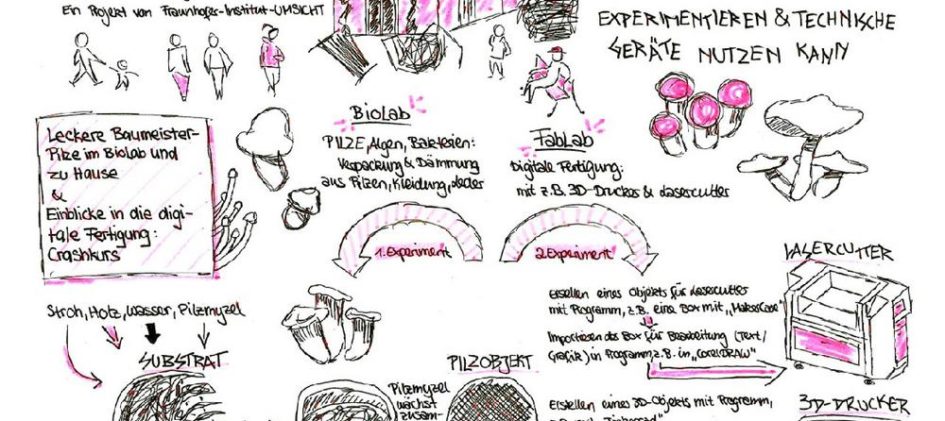 Ein Projekt von Fraunhofer-Institut-UMSICHT
EXPERIMENTIEREN & TECHNISCHE
GERÄTE NUTZEN KANN
Leckere Baumeister-
Pilze im BioLab und
zu Hause
&
Einblicke in die digi-
tale Fertigung:
Crashkurs
BioLab
PILZE, Algen, Bakterien:
Verpackung & Dämmung
aus Pilzen, Kleidung, Leder
FabLab
Digitale Fertigung:
mit z.B. 3D-Drucker & Lasercutter
1. Experiment
2. Experiment
Stroh, Holz, Wasser, Pilzmyzel
SUBSTRAT
PILZOBJEKT
Pilzmyzel
wächst
zusam-
LASERCUTTER
Erstellen eines Objekts für Lasercutter
mit Programm, z.B. eine Box mit „MakesCase"
Importieren des Box für Bearbeitung (Text/
Grafik) in Programm, z.B. in „CorelDRAW"
Erstellen eines 3D-Objekts mit Programm,
3D-DRUCKER